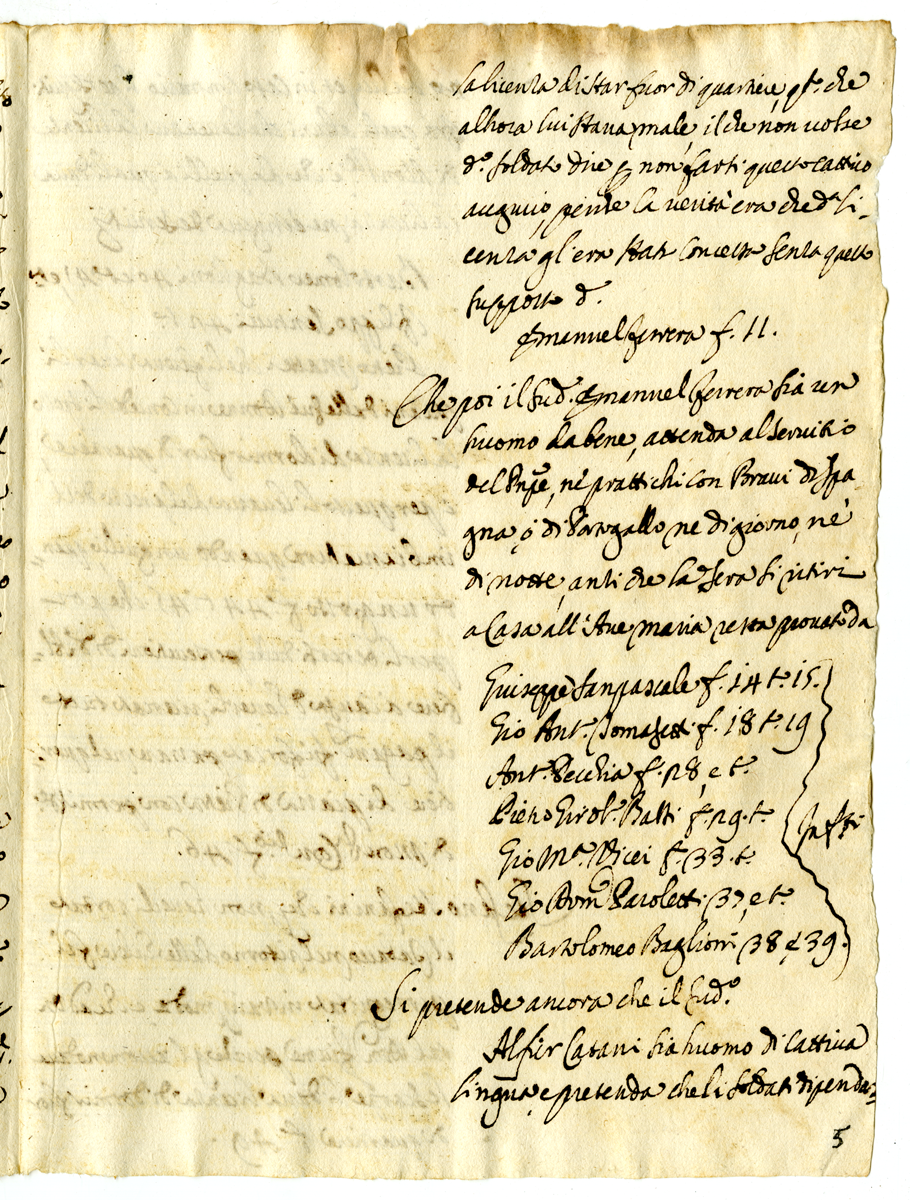 la licenza di star fuor di quartiere, p.che
alhora lui stava male, il che non volse
d.o soldato dire p non farti questo cattivo
augurio, perche la verità era che d.a li-
cenza gl'era stata concessa senza questo
supposto d.
Emanuel Ferrera f. 11.
Che poi il sud.o Emanuel Ferrera sia un
huomo da bene, attenda al servitio
del Pnpe, nè prattichi con Bravi di Spa
gna, ò di Portogallo, ne di giorno, nè
di notte, anti che la sera si ritiri
a Casa all'Ave maria resta provato da
Giuseppe Sanpascale f. 14 t.o 15.
Gio Ant.o Tomasetti f. 18 t.o 19
Ant.o Vecchia f. 28, e t.o
Pietro Girol.o Balti f. 29. t.o
Gio M.a Vicei f. 33. t.o
Gio Dom.o Paroletti 37, e t.o
Bartolomeo Baglioni 38 e 39.
Si pretende ancora che il sud.o
Alfier Catani sia huomo di cattiva
lingua, e pretenda che li soldati dipenda-
5